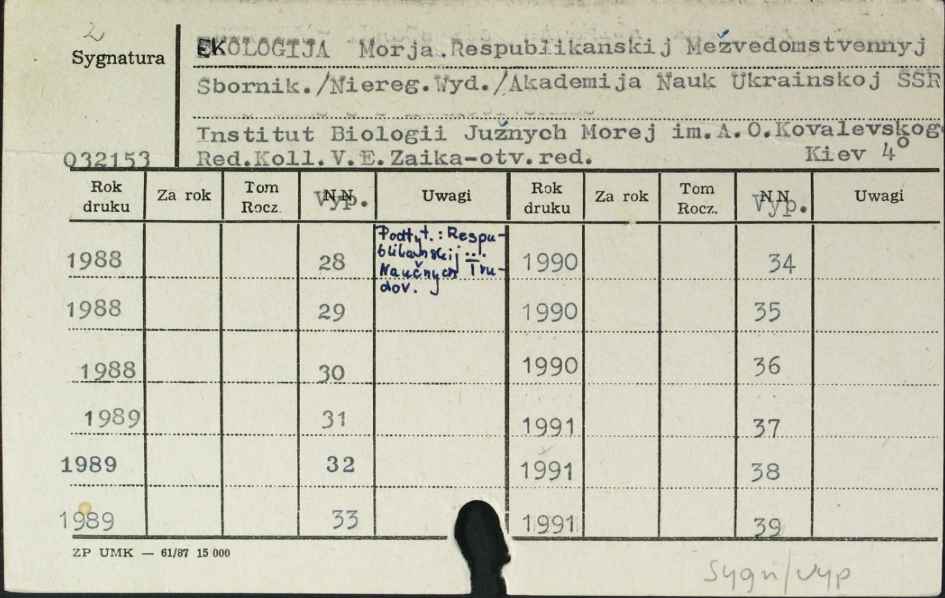 2
Sygnatura
EKOLOGIJA Morja.Respublikanskij Mežvedomstvennyj
Sbornik./Niereg.Wyd./Akademija Nauk Ukrainskoj SSR
Institut Biologii Južnych Morej im.A.O.Kovalevskog
Q32153 Red.Koll.V.E.Zaika-otv.red. Kiev 4°
Rok druku Za rok Tom Rocz. Vyp. Uwagi Rok druku Za rok Tom Rocz. Vyp. Uwagi
Podtyt.: Respu-
blikanskij ...
Naučnych Tru-
dov.
1988 28 1990 34
1988 29 1990 35
1988 30 1990 36
1989 31 1991 37
1989 32 1991 38
1989 33 1991 39
ZP UMK — 61/87 15 000
Sygn/vyp